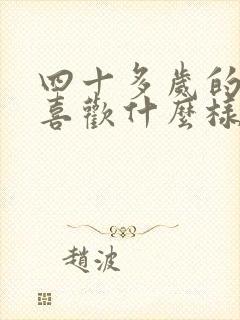 四十多歲的
喜歡什麼樣
趙波